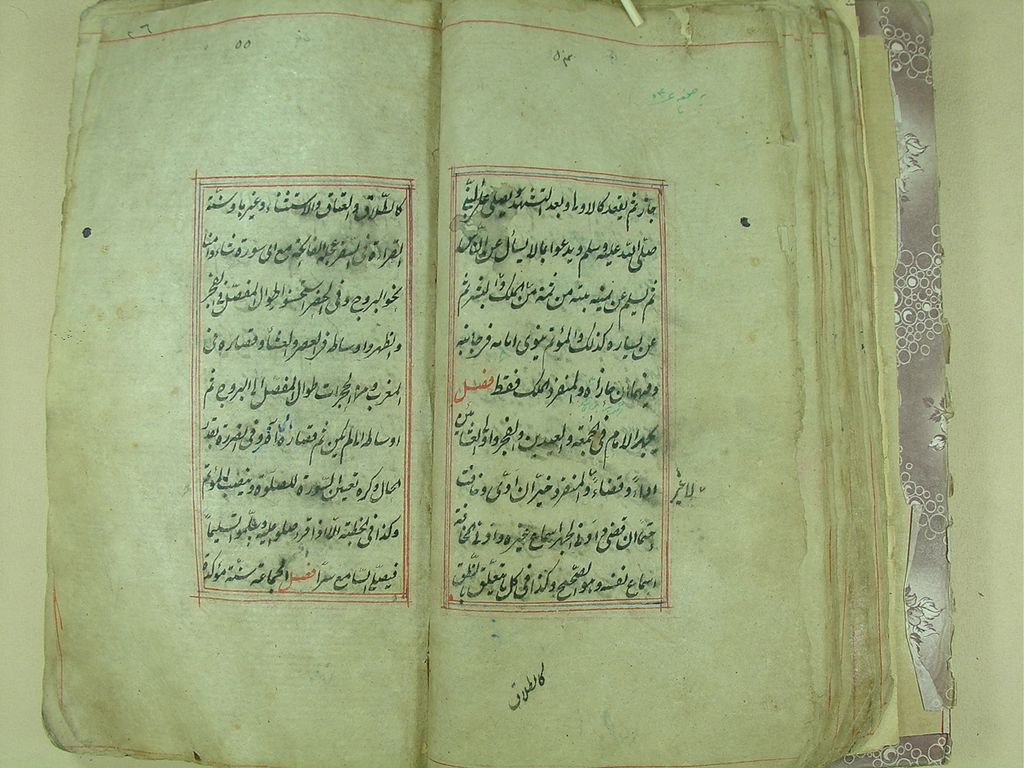 جاز ثم يقعد كالاولى وبعد التشهد يصلى على النبى
صلى الله عليه وسلم ويدعو بما لا يسأل عن الناس
ثم يسلم عن يمينه بنية من ثمة من الملك والبشر ثم
عن يساره كذلك والمؤتم ينوى امامه فى جانبه
وفيهما ان حاذاه والمنفرد الملك فقط فصل
يجهر الامام فى الجمعة والعيدين والفجر واولى العشائين
اداء وقضاء والمنفرد خير ان ادى وخافت
حتما ان قضى وادنى الجهر اسماع غيره وادنى المخافتة
اسماع نفسه وهو الصحيح وكذا فى كل ما يتعلق بالنطق
لا غير
كالطلاق
٥٥
كالطلاق والعتاق والاستثناء وغيرها وسنة
القراءة فى السفر عجلة الفاتحة مع اى سورة شاء وامنا
نحو البروج وفى الحضر استحسنوا طوال المفصل فى الفجر
والظهر واوساطه فى العصر والعشاء وقصاره فى
المغرب ومن الحجرات طوال المفصل الى البروج ثم
اوساطه الى لم يكن ثم قصاره الى آخره وفى الضرورة بقدر
الحال وكره تعيين السورة للصلوة وينصت المؤتم
وكذا فى الخطبة الا اذا قرء صلوا عليه وسلموا تسليما
فيصلى السامع سرا فصل الجماعة سنة مؤكدة